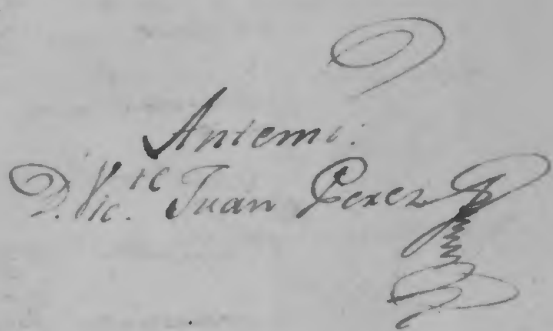 Antemi.
D. Vic.te Juan Perez